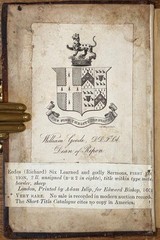 William Goode, D.D. F.S.A.
Dean of Ripon
Eedes (Richard) Six Learned and godly Sermons, FIRST EDI-
TION, 7 ll. unsigned (or 2 in eights), title within type
border, sheep
London, Printed by Adam Islip, for Edward Bishop, 160
VERY RARE. No sale is recorded in modern auction records.
The Short Title Catalogue cites no copy in America.